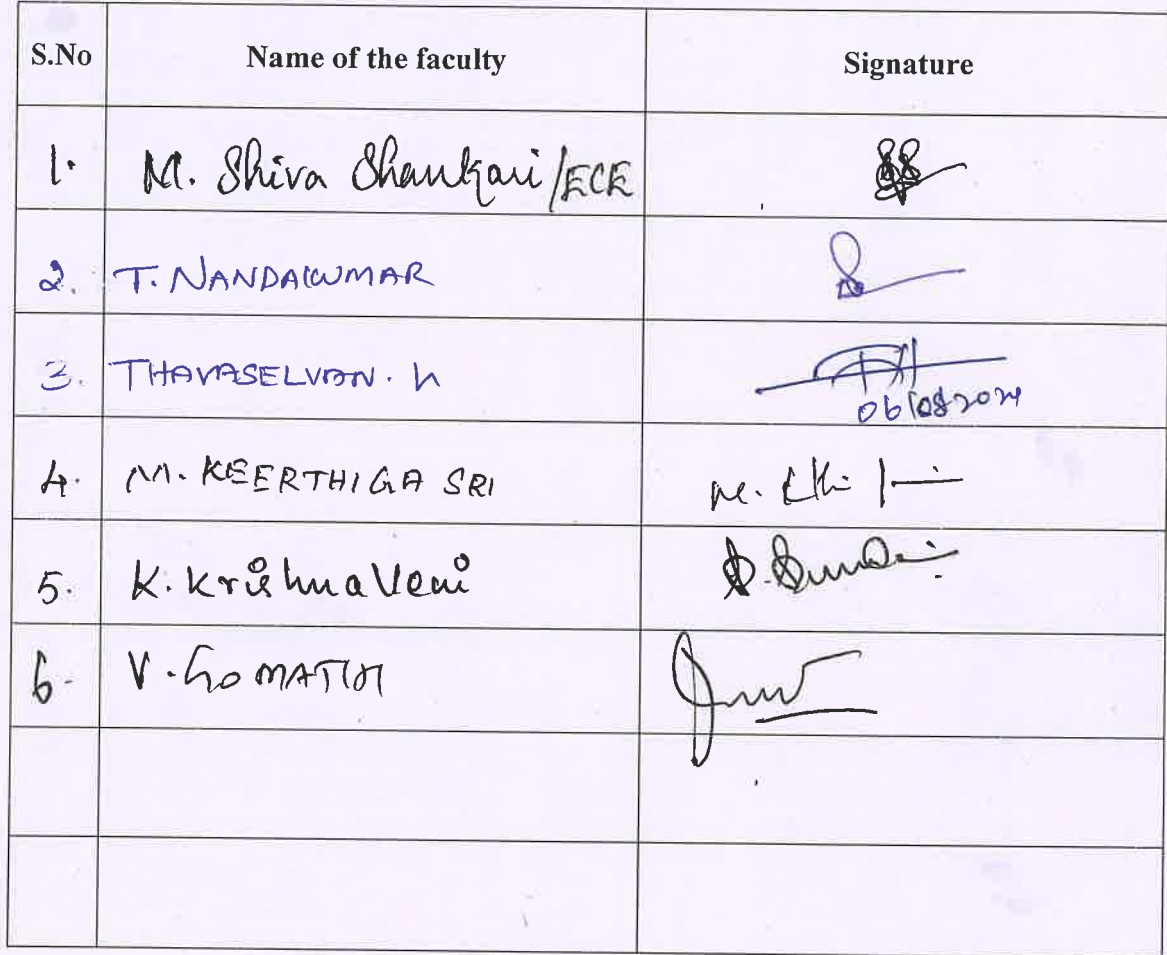 S.No Name of the faculty Signature
1. M. Shiva Shankari /ECE
2. T. NANDAKUMAR
3. THAVASELVAN. K
06/08/2024
4. M. KEERTHIGA SRI
5. K. Krishnaveni
6. V. GOMATHI